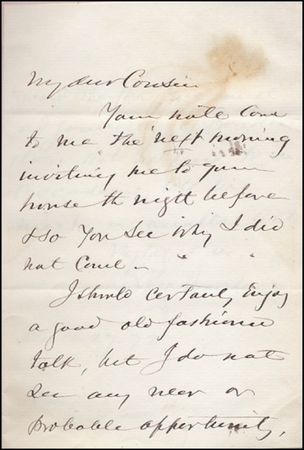 My dear Cousin
Your note came
to me the next morning
inviting me to your
house th night before
& so you see why I did
not come –
I should certainly enjoy
a good old fashioned
talk, but I do not
see any near or
probable opportunity,